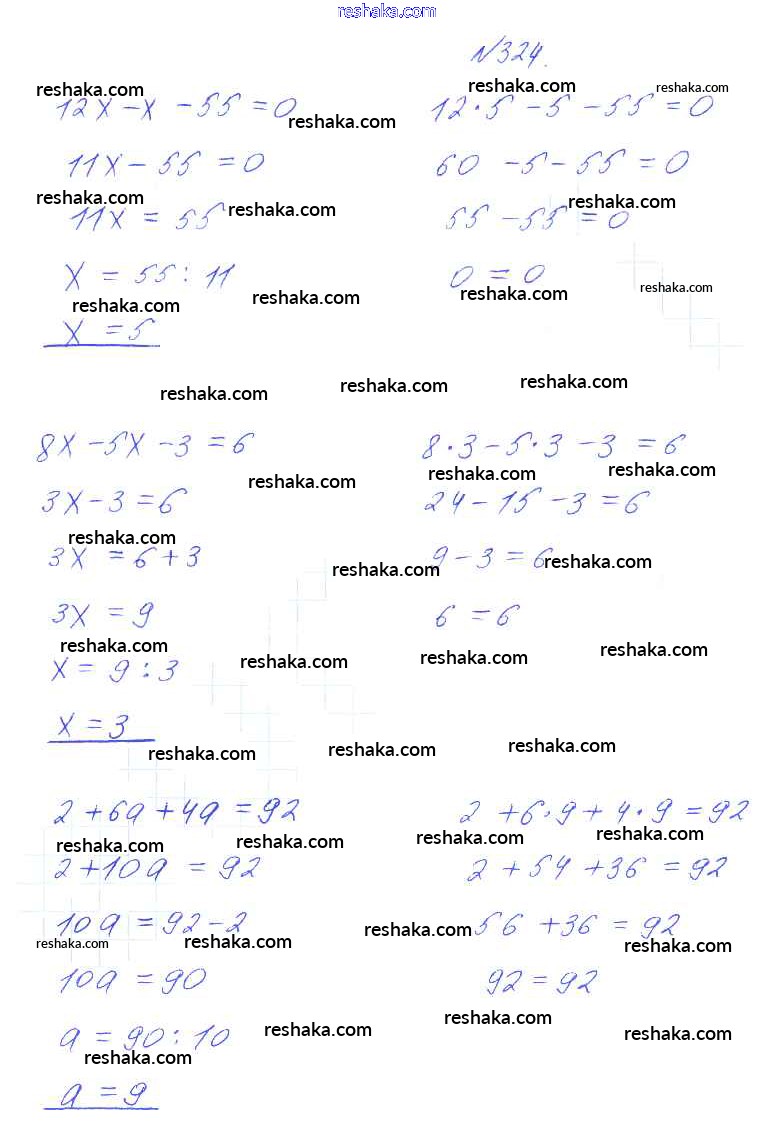 reshaka.com
№324.
reshaka.com reshaka.com reshaka.com
12x - x - 55 = 0 12·5 - 5 - 55 = 0
reshaka.com
11x - 55 = 0 60 - 5 - 55 = 0
reshaka.com reshaka.com reshaka.com
11x = 55 55 - 55 = 0
x = 55 : 11 0 = 0
reshaka.com reshaka.com reshaka.com reshaka.com
x = 5
reshaka.com reshaka.com reshaka.com
8x - 5x - 3 = 6 8·3 - 5·3 - 3 = 6
reshaka.com reshaka.com reshaka.com
3x - 3 = 6 24 - 15 - 3 = 6
reshaka.com
3x = 6 + 3 9 - 3 = 6
reshaka.com reshaka.com
3x = 9 6 = 6
reshaka.com reshaka.com reshaka.com reshaka.com
x = 9 : 3
x = 3
reshaka.com reshaka.com reshaka.com
2 + 6a + 4a = 92 2 + 6·9 + 4·9 = 92
reshaka.com reshaka.com reshaka.com reshaka.com
2 + 10a = 92 2 + 54 + 36 = 92
10a = 92 - 2 56 + 36 = 92
reshaka.com reshaka.com reshaka.com reshaka.com
10a = 90 92 = 92
reshaka.com reshaka.com reshaka.com
a = 90 : 10
reshaka.com
a = 9